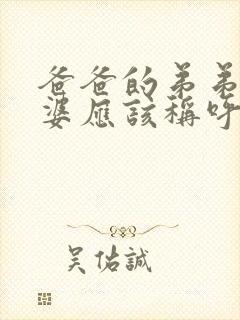 爸爸的弟弟
婆應該稱呼
吴佑誠